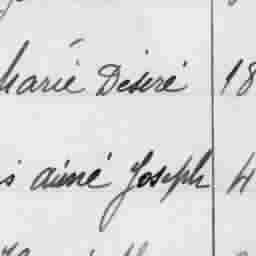 Marie Désiré 18
s aimé Joseph 4